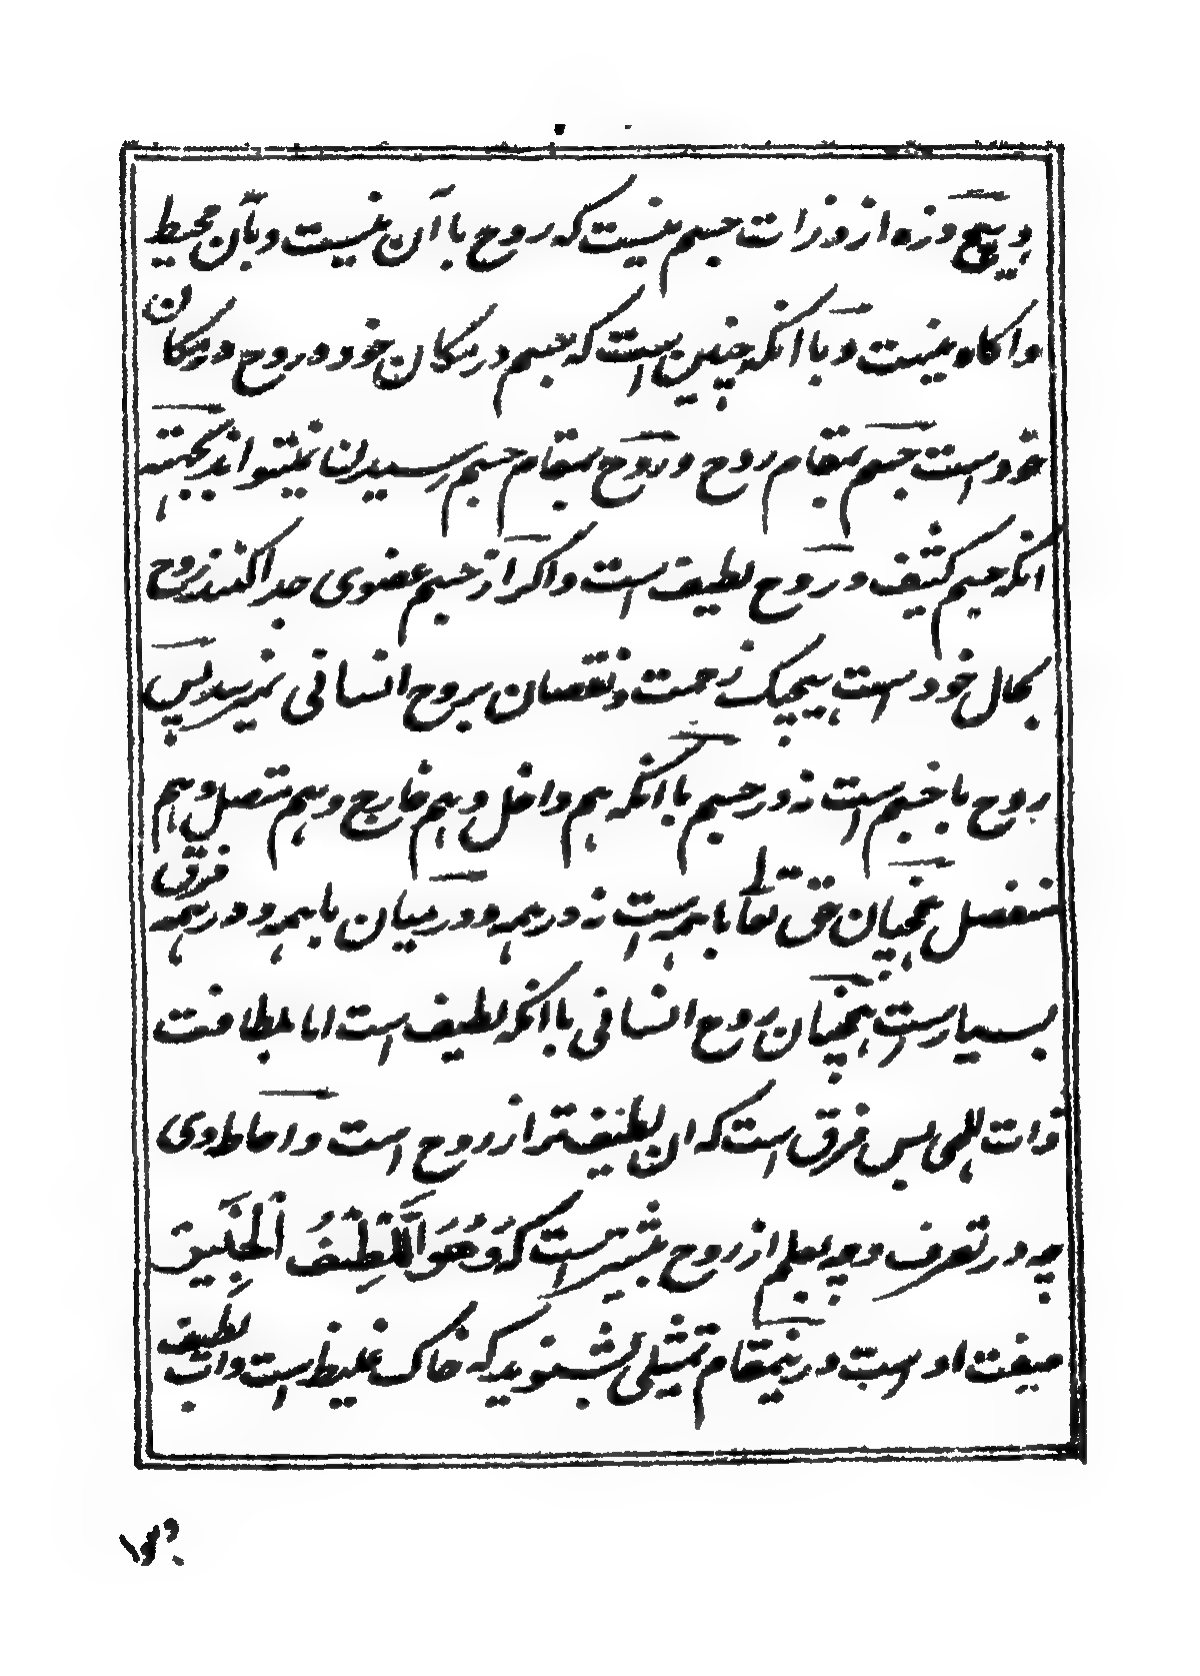 و هیچ ذره از ذرات جسم نیست که روح با آن نیست و بآن محیط
و اکاه نیست و با انکه چنین است که جسم در مکان خود و روح در مکان
خود است جسم بمقام روح و روح بمقام جسم رسیدن نمیتواند بجهته
انکه جسم کثیف و روح لطیف است و اکر از جسم عضوی جدا کنند روح
بحال خود است هیچیک زحمت و نقصان بروح انسانی نمیرسد پس
روح با جسم است نه در جسم با انکه هم داخل و هم خارج و هم متصل و هم
منفصل همچنان حق تعالی با همه است نه در همه و در میان با همه و در همه فرق
بسیار است همچنان روح انسانی با انکه لطیف است اما بلطافت
ذات الهی بس فرق است که ان لطیف تر از روح است و احاطه وی
چه در تعرف و چه بعلم از روح بیشتر است که وَهُوَ اللَّطِیْفُ الْخَبِیر
صفت اوست درینمقام تمثیلی بشنوید که خاک غلیظ است و اب لطیف